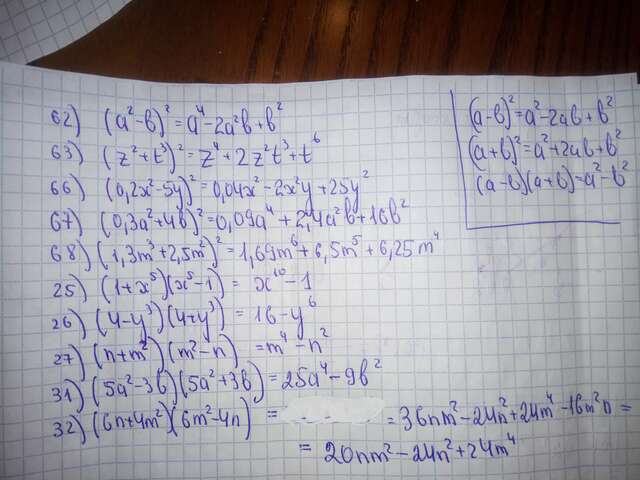 62) (a²-b)²=a⁴-2a²b+b²
63) (z²+t³)²=z⁴+2z²t³+t⁶
66) (0,2x²-5y)²=0,04x²-2x²y+25y²
67) (0,3a²+4b)²=0,09a⁴+2,4a²b+16b²
68) (1,3m³+2,5m²)²=1,69m⁶+6,5m⁵+6,25m⁴
25) (1+x⁵)(x⁵-1)=x¹⁰-1
26) (4-y³)(4+y³)=16-y⁶
27) (n+m²)(m²-n)=m⁴-n²
31) (5a²-3b)(5a²+3b)=25a⁴-9b²
32) (6n+4m²)(6m²-4n)= =36nm²-24n²+24m⁴-16m²n=
=20nm²-24n²+24m⁴
(a-b)²=a²-2ab+b²
(a+b)²=a²+2ab+b²
(a-b)(a+b)=a²-b²